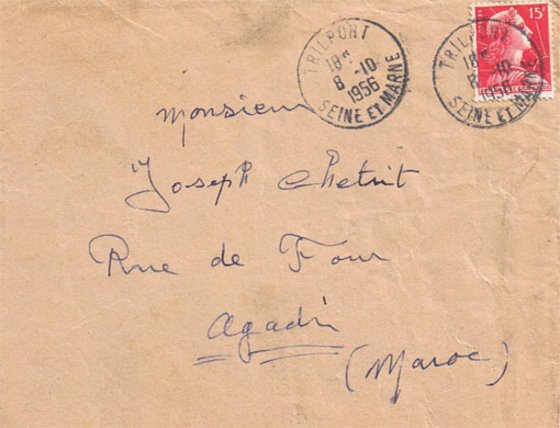 TRILPORT
18H
8-10
1956
SEINE ET MARNE
TRILPORT
18H
8-10
1956
SEINE ET MARNE
15F
Monsieur
Joseph Chetrit
Rue de Four
Agadir
(Maroc)